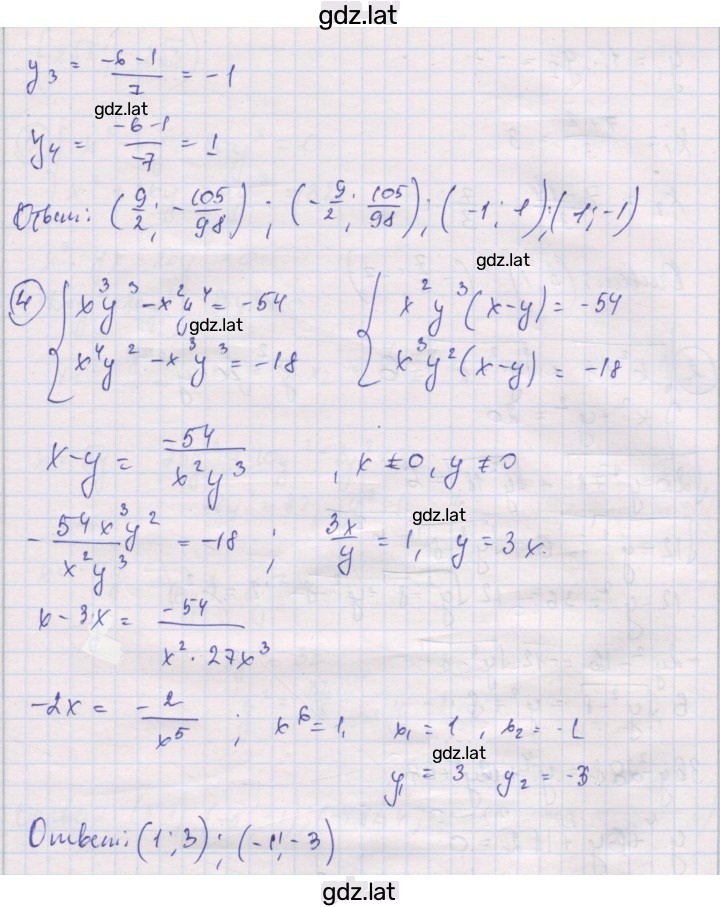 gdz.lat
y₃ = (-6-1)/7 = -1
gdz.lat
y₄ = (-6-1)/-7 = 1
Ответ: (9/2; -105/98); (-9/2; 105/98); (-1; 1); (1; -1)
gdz.lat
④ { x³y³ - x²y⁴ = -54 { x²y³(x-y) = -54
gdz.lat
x⁴y² - x³y³ = -18 x³y²(x-y) = -18
x-y = -54/(x²y³), x ≠ 0, y ≠ 0
gdz.lat
-54x³y²/(x²y³) = -18; 3x/y = 1, y = 3x.
x - 3x = -54/(x²·27x³)
-2x = -2/x⁵; x⁶ = 1, x₁ = 1, x₂ = -1
gdz.lat
y₁ = 3 y₂ = -3
Ответ: (1; 3); (-1; -3)
gdz.lat